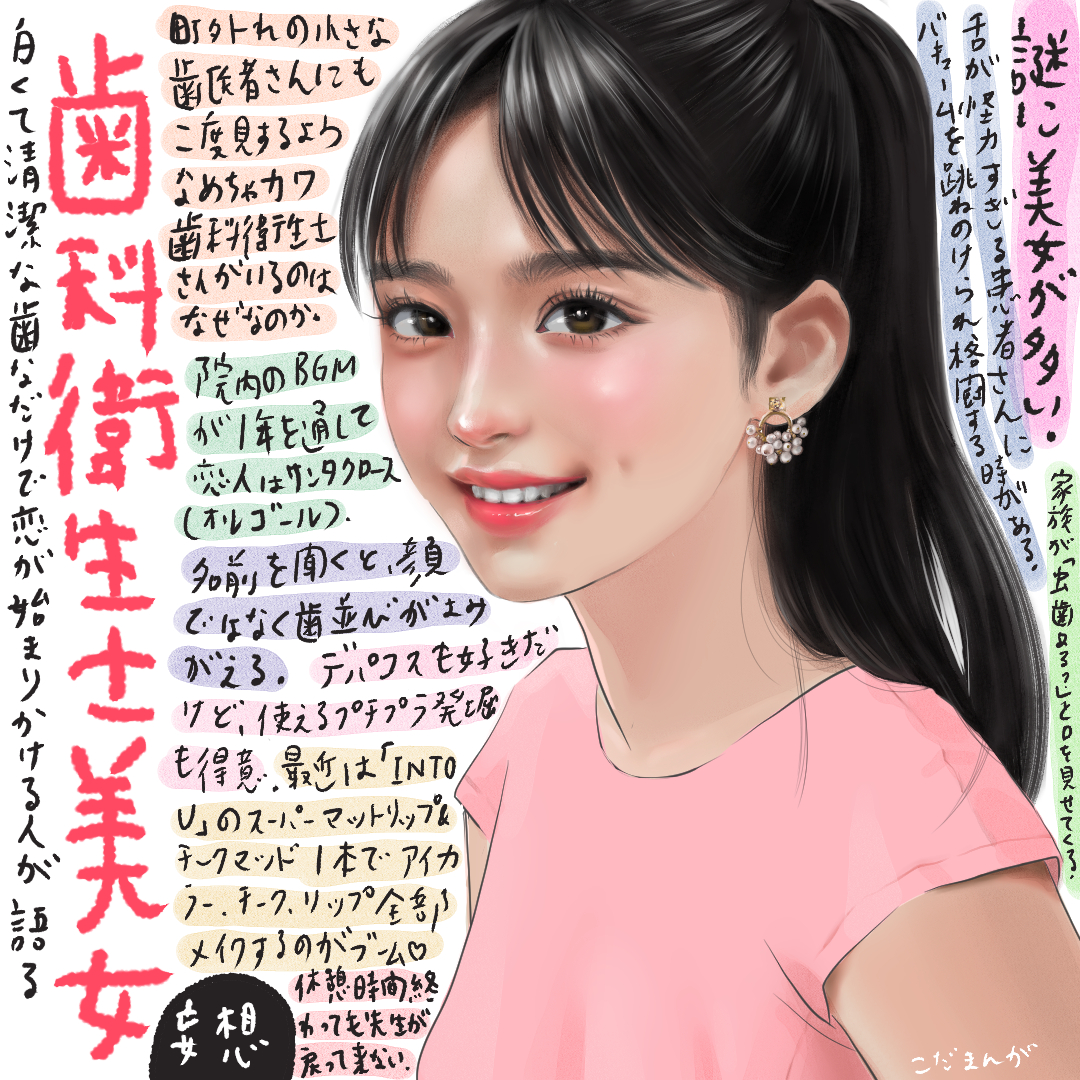 白くて清潔な歯なだけで恋が始まりかける人が語る
歯科衛生士美女
妄想
町外れの小さな
歯医者さんにも
二度見するよう
なめちゃカワ
歯科衛生士
さんがいるのは
なぜなのか。
院内のBGM
が1年を通して
恋人はサンタクロース
(オルゴール)。
名前を聞くと、顔
ではなく歯並びが浮
がえる。
デパコスも好きだ
けど、使えるプチプラ発掘
も得意。
最近は「INTO
U」のスーパーマットリップ&
チークマッド 1本でアイカ
ラー、チーク、リップ全部
メイクするのがブーム♡
休憩時間終
わっても先生が
戻って来ない。
謎に美女が多い。
舌が怪力すぎる患者さんに
バキュームを跳ねのけられ、格闘する時がある。
家族が「虫歯ある?」と口を見せてくる。
こだまんが